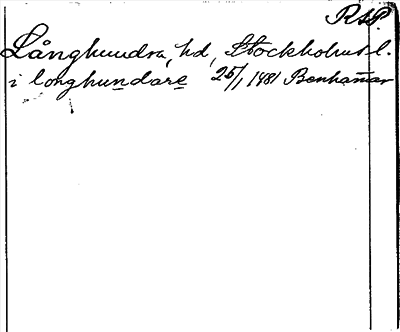 RSP.
Långhundra, hd, Stockholms l.
i longhundare 25/1 1481 Benhamar